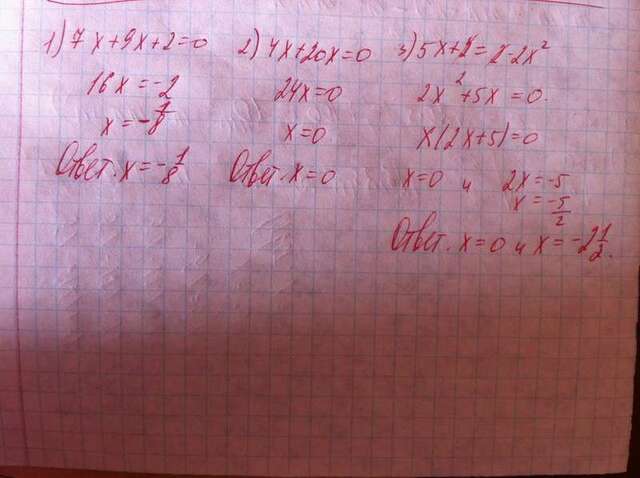 1) 7x+9x+2=0
16x=-2
x=-1/8
Ответ. x=-1/8
2) 4x+20x=0
24x=0
x=0
Ответ. x=0
3) 5x+2=2-2x²
2x²+5x=0.
x(2x+5)=0
x=0 и 2x=-5
x=-5/2
Ответ. x=0 и x=-2 1/2.